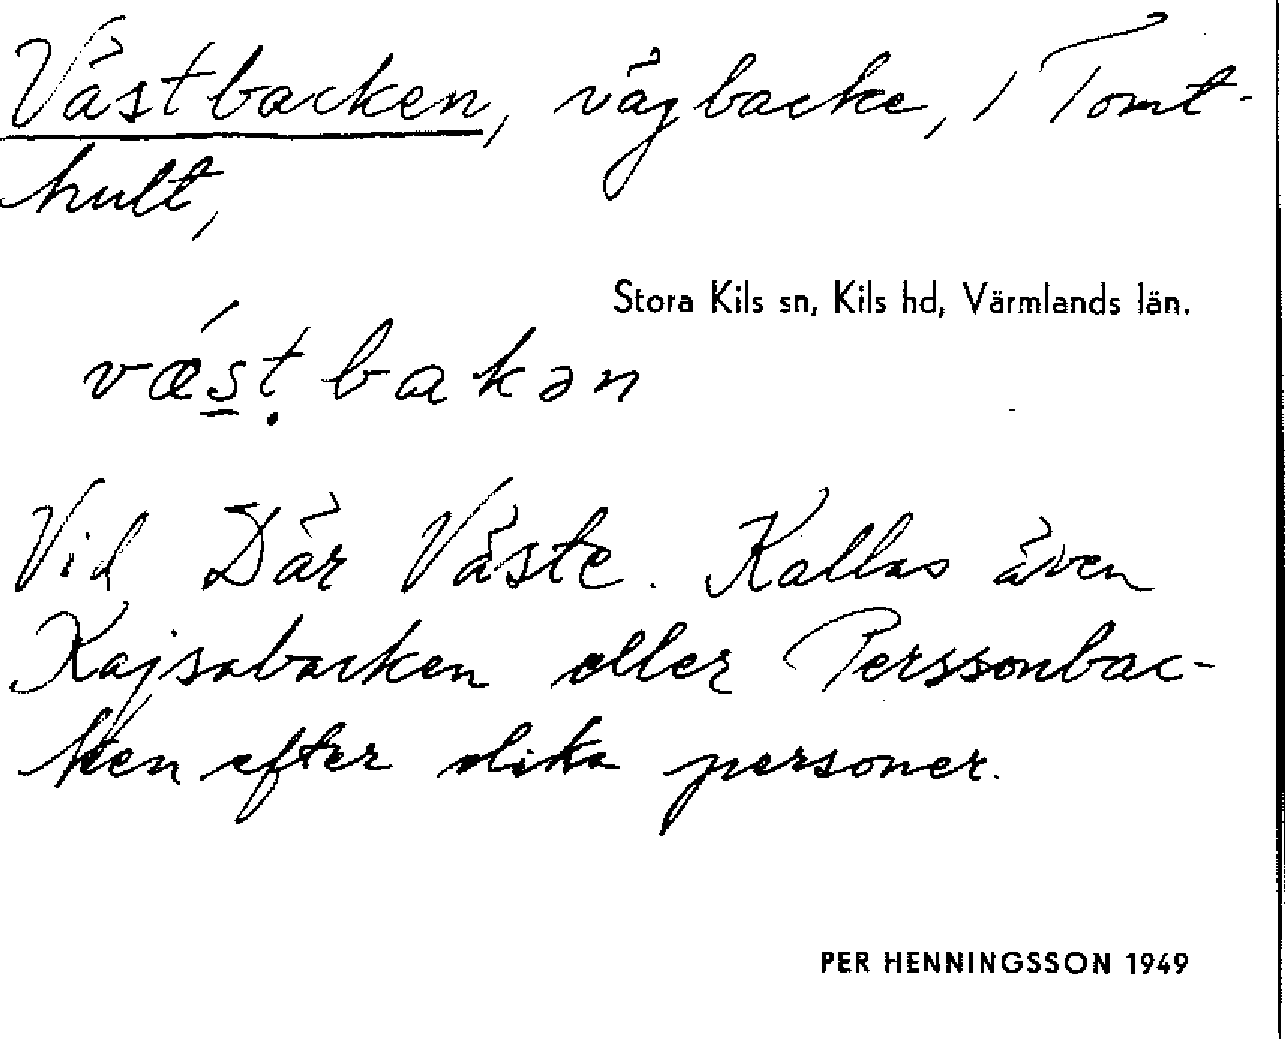 Västbacken, vägbacke, i Tomt-
hult,
Stora Kils sn, Kils hd, Värmlands län.
vǽs̲ṭbakən
Vid Där Väste. Kallas även
Kajsabacken eller Perssonbac-
ken efter olika personer.
PER HENNINGSSON 1949